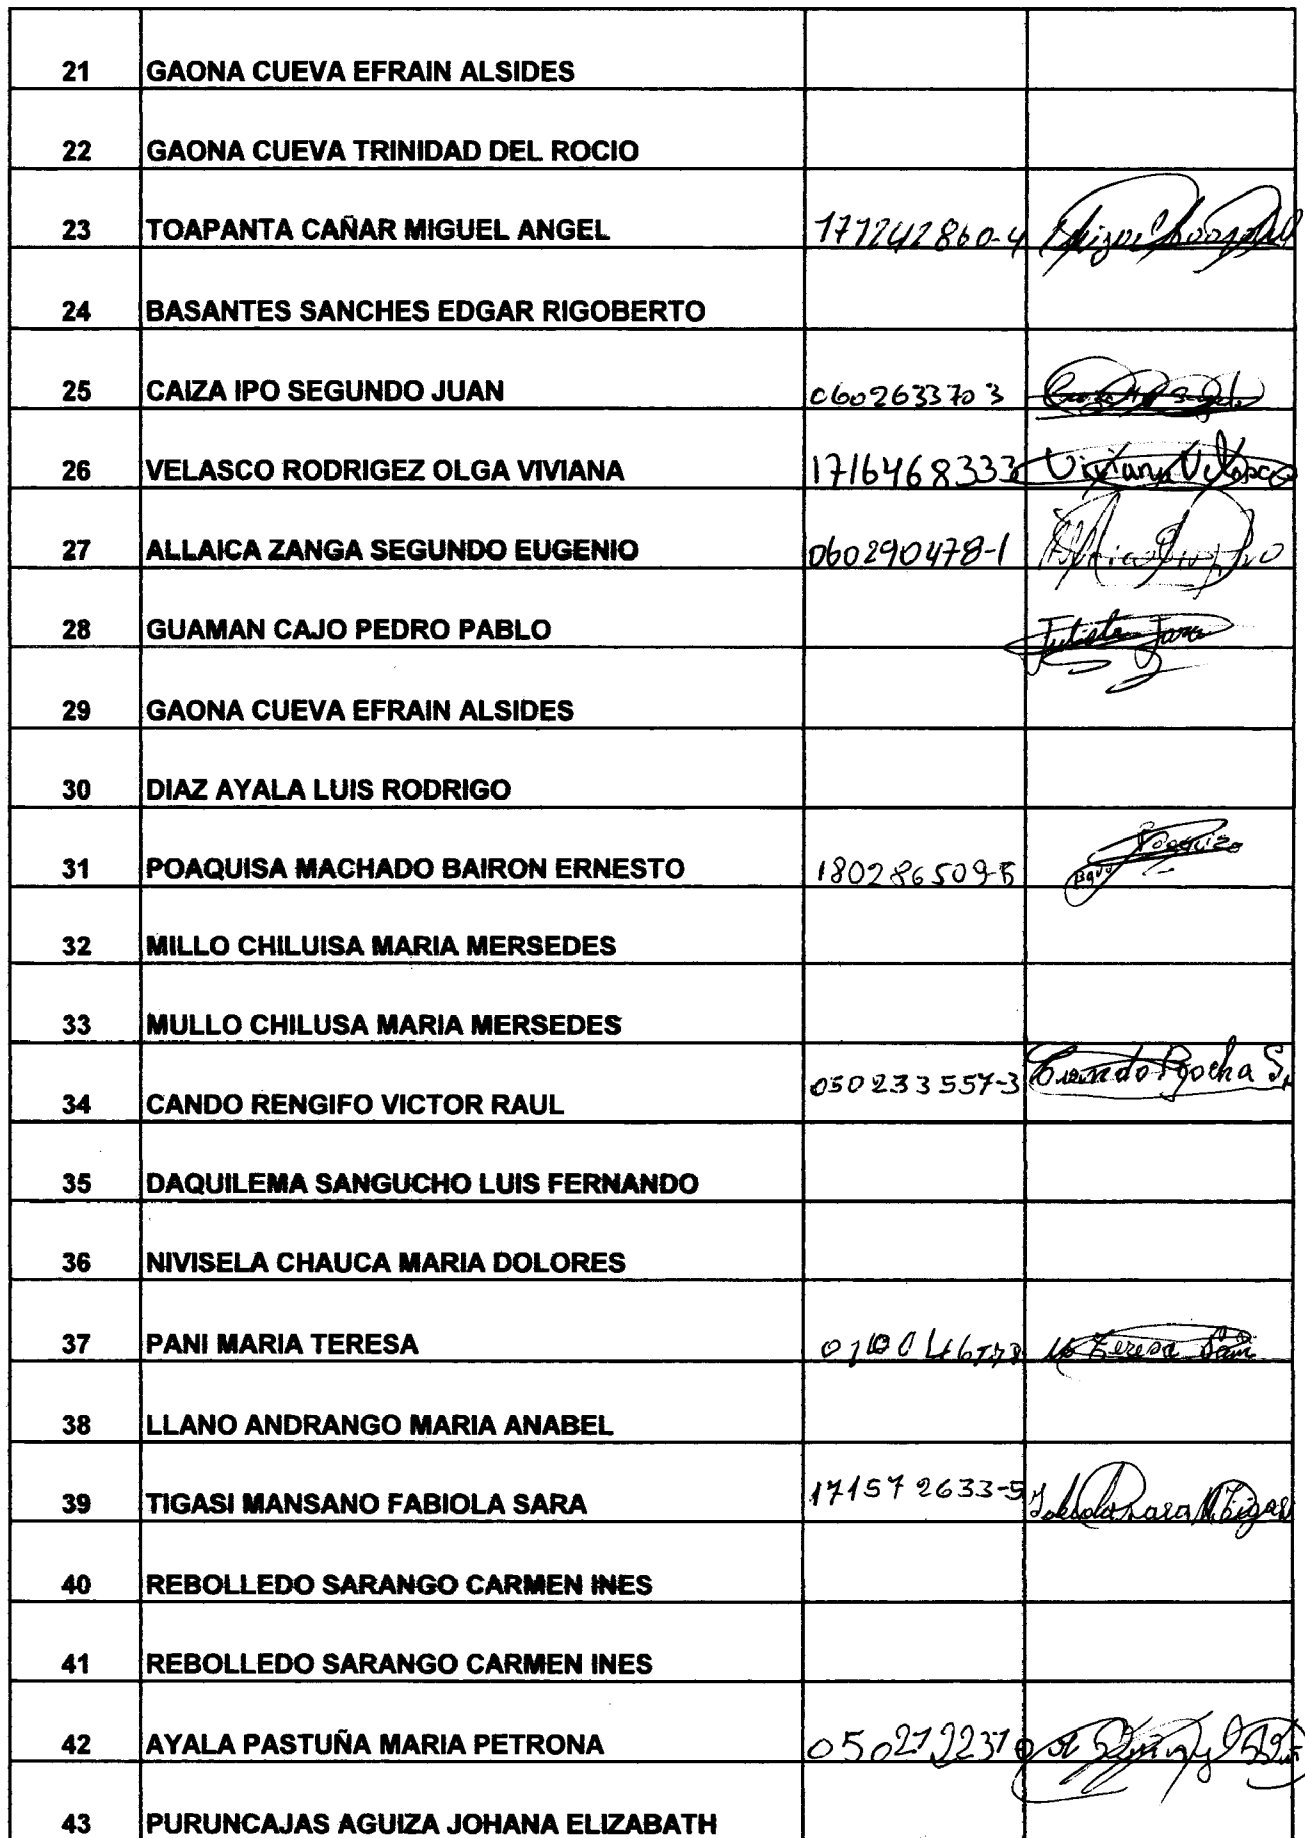 21 GAONA CUEVA EFRAIN ALSIDES
22 GAONA CUEVA TRINIDAD DEL ROCIO
23 TOAPANTA CAÑAR MIGUEL ANGEL 171242860-4
24 BASANTES SANCHES EDGAR RIGOBERTO
25 CAIZA IPO SEGUNDO JUAN 0602633703
26 VELASCO RODRIGEZ OLGA VIVIANA 1716468333 Viviana Velasco
27 ALLAICA ZANGA SEGUNDO EUGENIO 060290478-1
28 GUAMAN CAJO PEDRO PABLO
29 GAONA CUEVA EFRAIN ALSIDES
30 DIAZ AYALA LUIS RODRIGO
31 POAQUISA MACHADO BAIRON ERNESTO 180286509-5
32 MILLO CHILUISA MARIA MERSEDES
33 MULLO CHILUSA MARIA MERSEDES
34 CANDO RENGIFO VICTOR RAUL 050233557-3
35 DAQUILEMA SANGUCHO LUIS FERNANDO
36 NIVISELA CHAUCA MARIA DOLORES
37 PANI MARIA TERESA
38 LLANO ANDRANGO MARIA ANABEL
39 TIGASI MANSANO FABIOLA SARA 171572633-5
40 REBOLLEDO SARANGO CARMEN INES
41 REBOLLEDO SARANGO CARMEN INES
42 AYALA PASTUÑA MARIA PETRONA
43 PURUNCAJAS AGUIZA JOHANA ELIZABATH